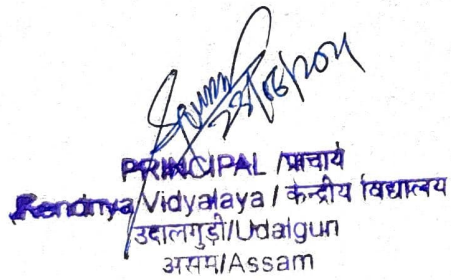 PRINCIPAL /प्राचार्य
Kendriya Vidyalaya / केन्द्रीय विद्यालय
उदालगुड़ी/Udalguri
असम/Assam